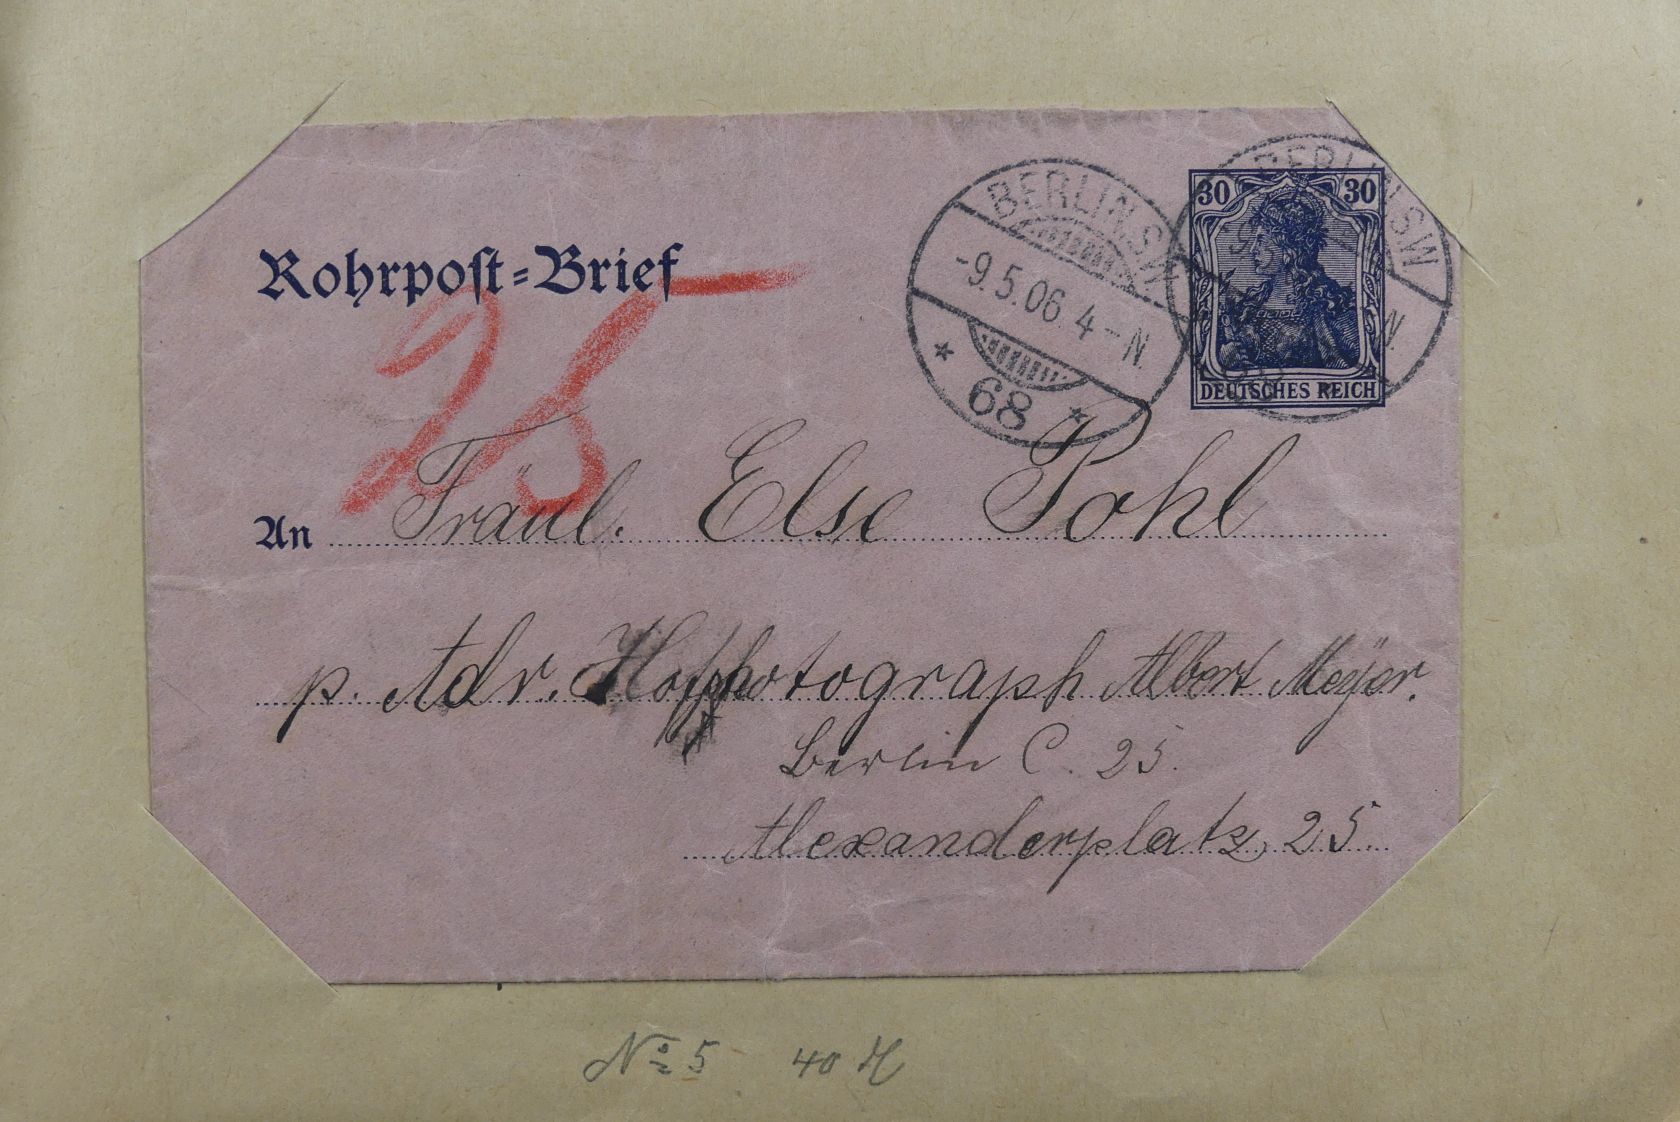 BERLIN.SW.
-9.5.06. 4-N.
* 68 *
BERLIN SW
N.
30 30
DEUTSCHES REICH
Rohrpost-Brief
25
An Fräul. Else Pohl
p. Adr. Hofphotograph Albert Meyer.
Berlin C. 25.
Alexanderplatz 25.
No 5 40 M